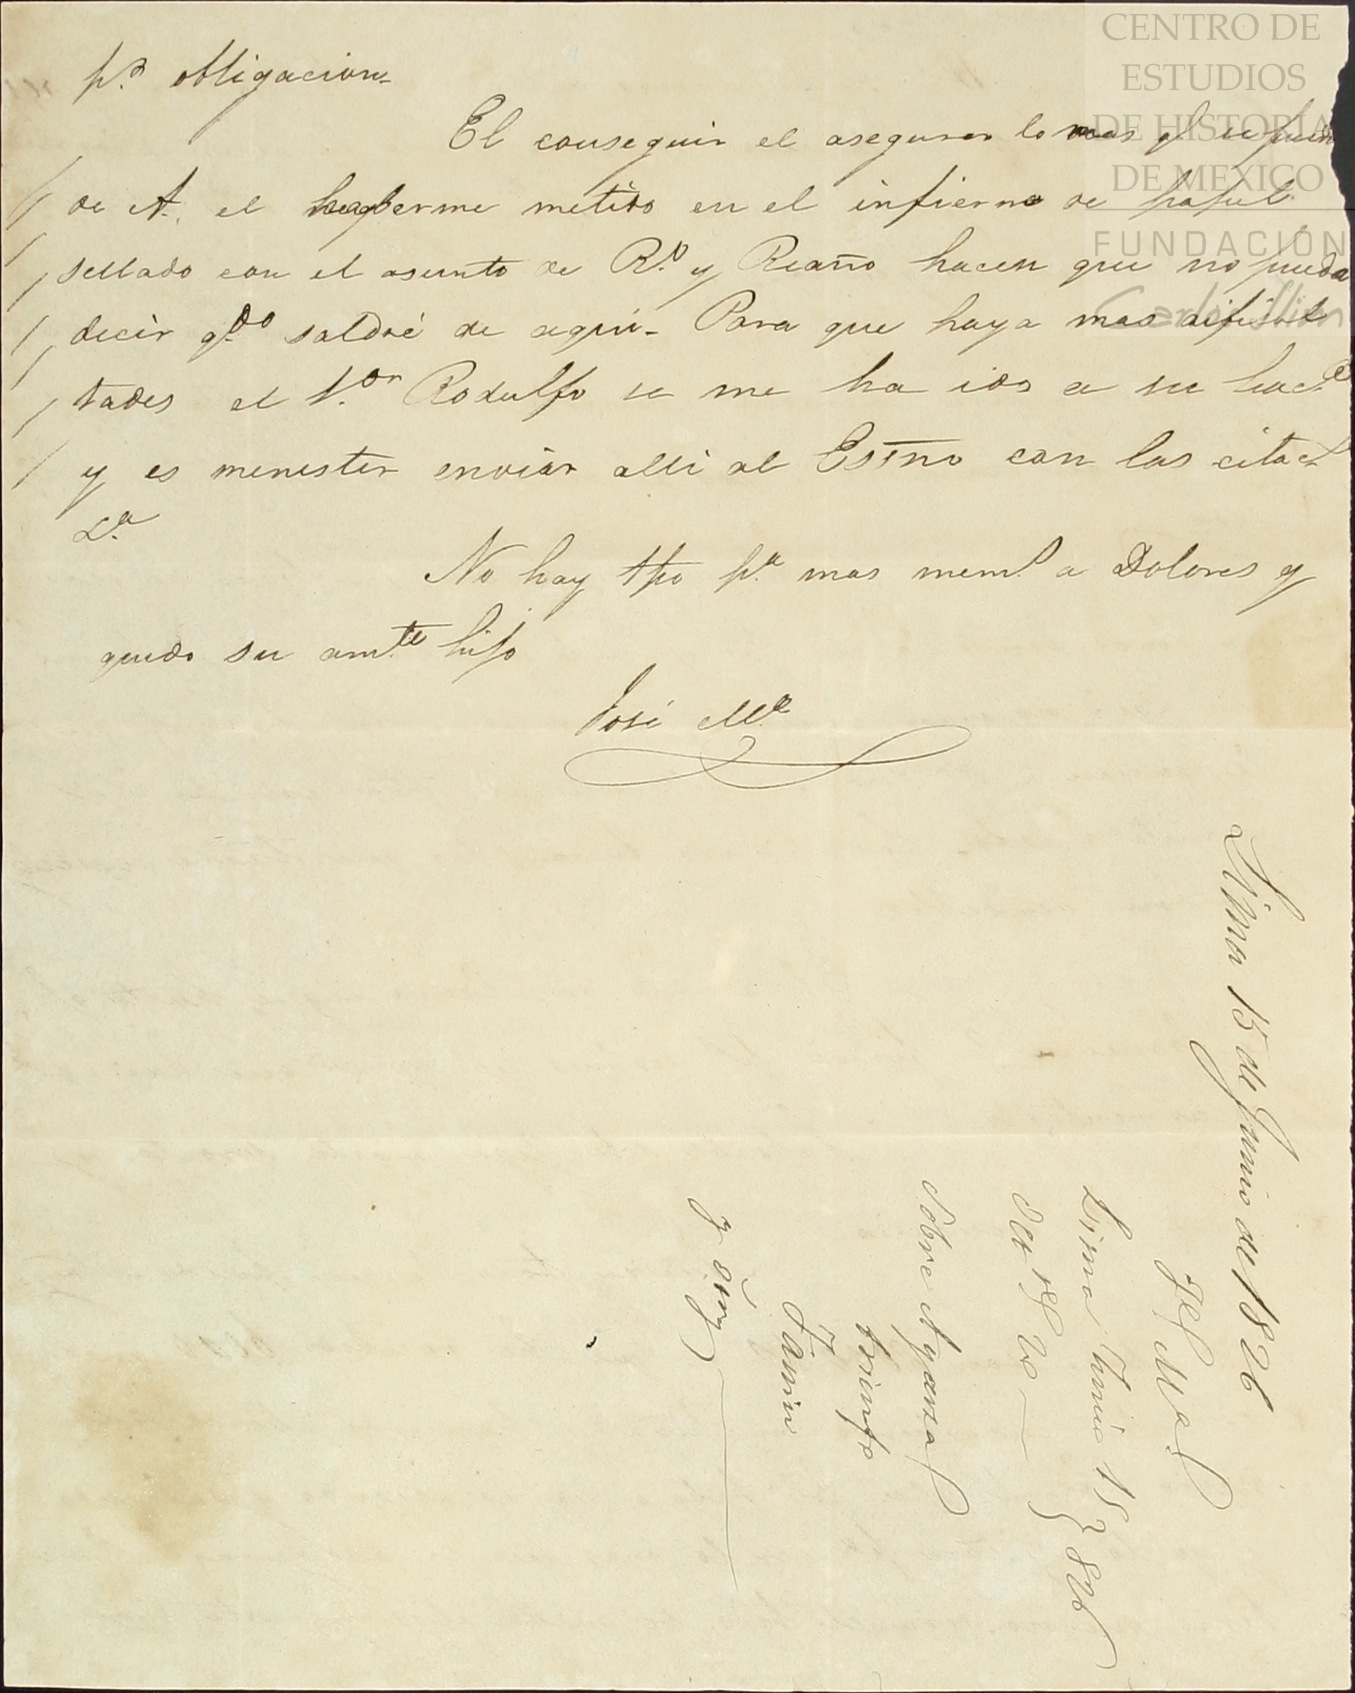 CENTRO DE
ESTUDIOS
DE HISTORIA
DE MEXICO
FUNDACIÓN
Carlos Slim
pr. obligacion-
El conseguir el asegurar lo mas qe. se pueda
de A. el haberme metido en el infierno de papel
sellado con el asunto de R.o y Reaño hacen que no pueda
decir qdo. saldré de aqui- Para que haya mas dificul
tades el Sor. Rodulfo se me ha ido a su hacda.
y es menester enviar alli al Esno con las citacs
La.
No hay tpo pa. mas mems. a Dolores y
quedo su amte. hijo
José Ma.
Lima 15 de Junio de 1826
Lima Junio 15 826
Sobre Ayanza
triunfo